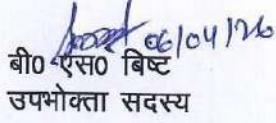 06/04/26
बी0 एस0 बिष्ट
उपभोक्ता सदस्य